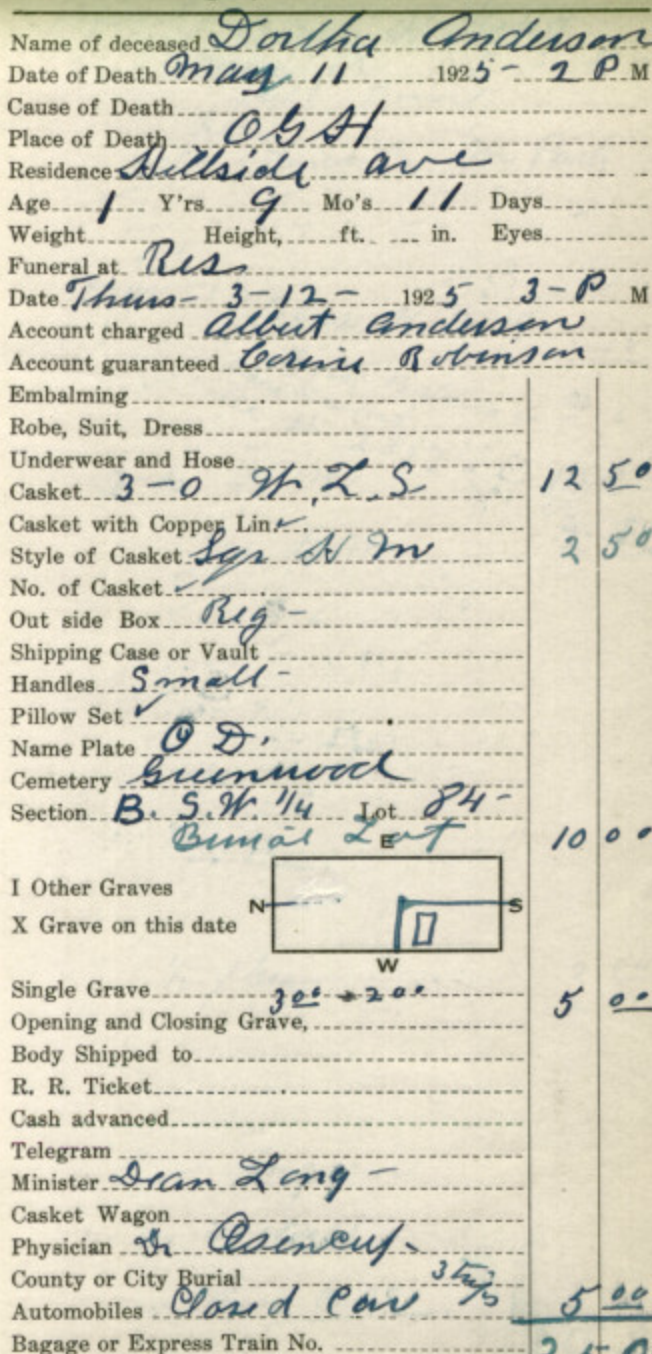 Name of deceased Dortha Anderson
Date of Death May 11 1925- 2 P M
Cause of Death
Place of Death O G H
Residence Hillside ave
Age 1 Y'rs 9 Mo's 11 Days
Weight Height, ft. in. Eyes
Funeral at Res
Date Thurs- 3-12- 1925 3-P M
Account charged Albert Anderson
Account guaranteed Corine Robinson
Embalming
Robe, Suit, Dress
Underwear and Hose
Casket 3-0 W. L. S 12 50
Casket with Copper Lin.
Style of Casket Sqr M 2 50
No. of Casket
Out side Box Reg-
Shipping Case or Vault
Handles Small-
Pillow Set ✓
Name Plate O D.
Cemetery Greenwood
Section B. S.W. 1/4 Lot 84-
Burial Lot 10 00
E
I Other Graves
N S
X Grave on this date
W
Single Grave 3 00 2 00 5 00
Opening and Closing Grave,
Body Shipped to
R. R. Ticket
Cash advanced
Telegram
Minister Dean Long-
Casket Wagon
Physician Dr
County or City Burial 3 trips
Automobiles Closed Car 5 00
Bagage or Express Train No.